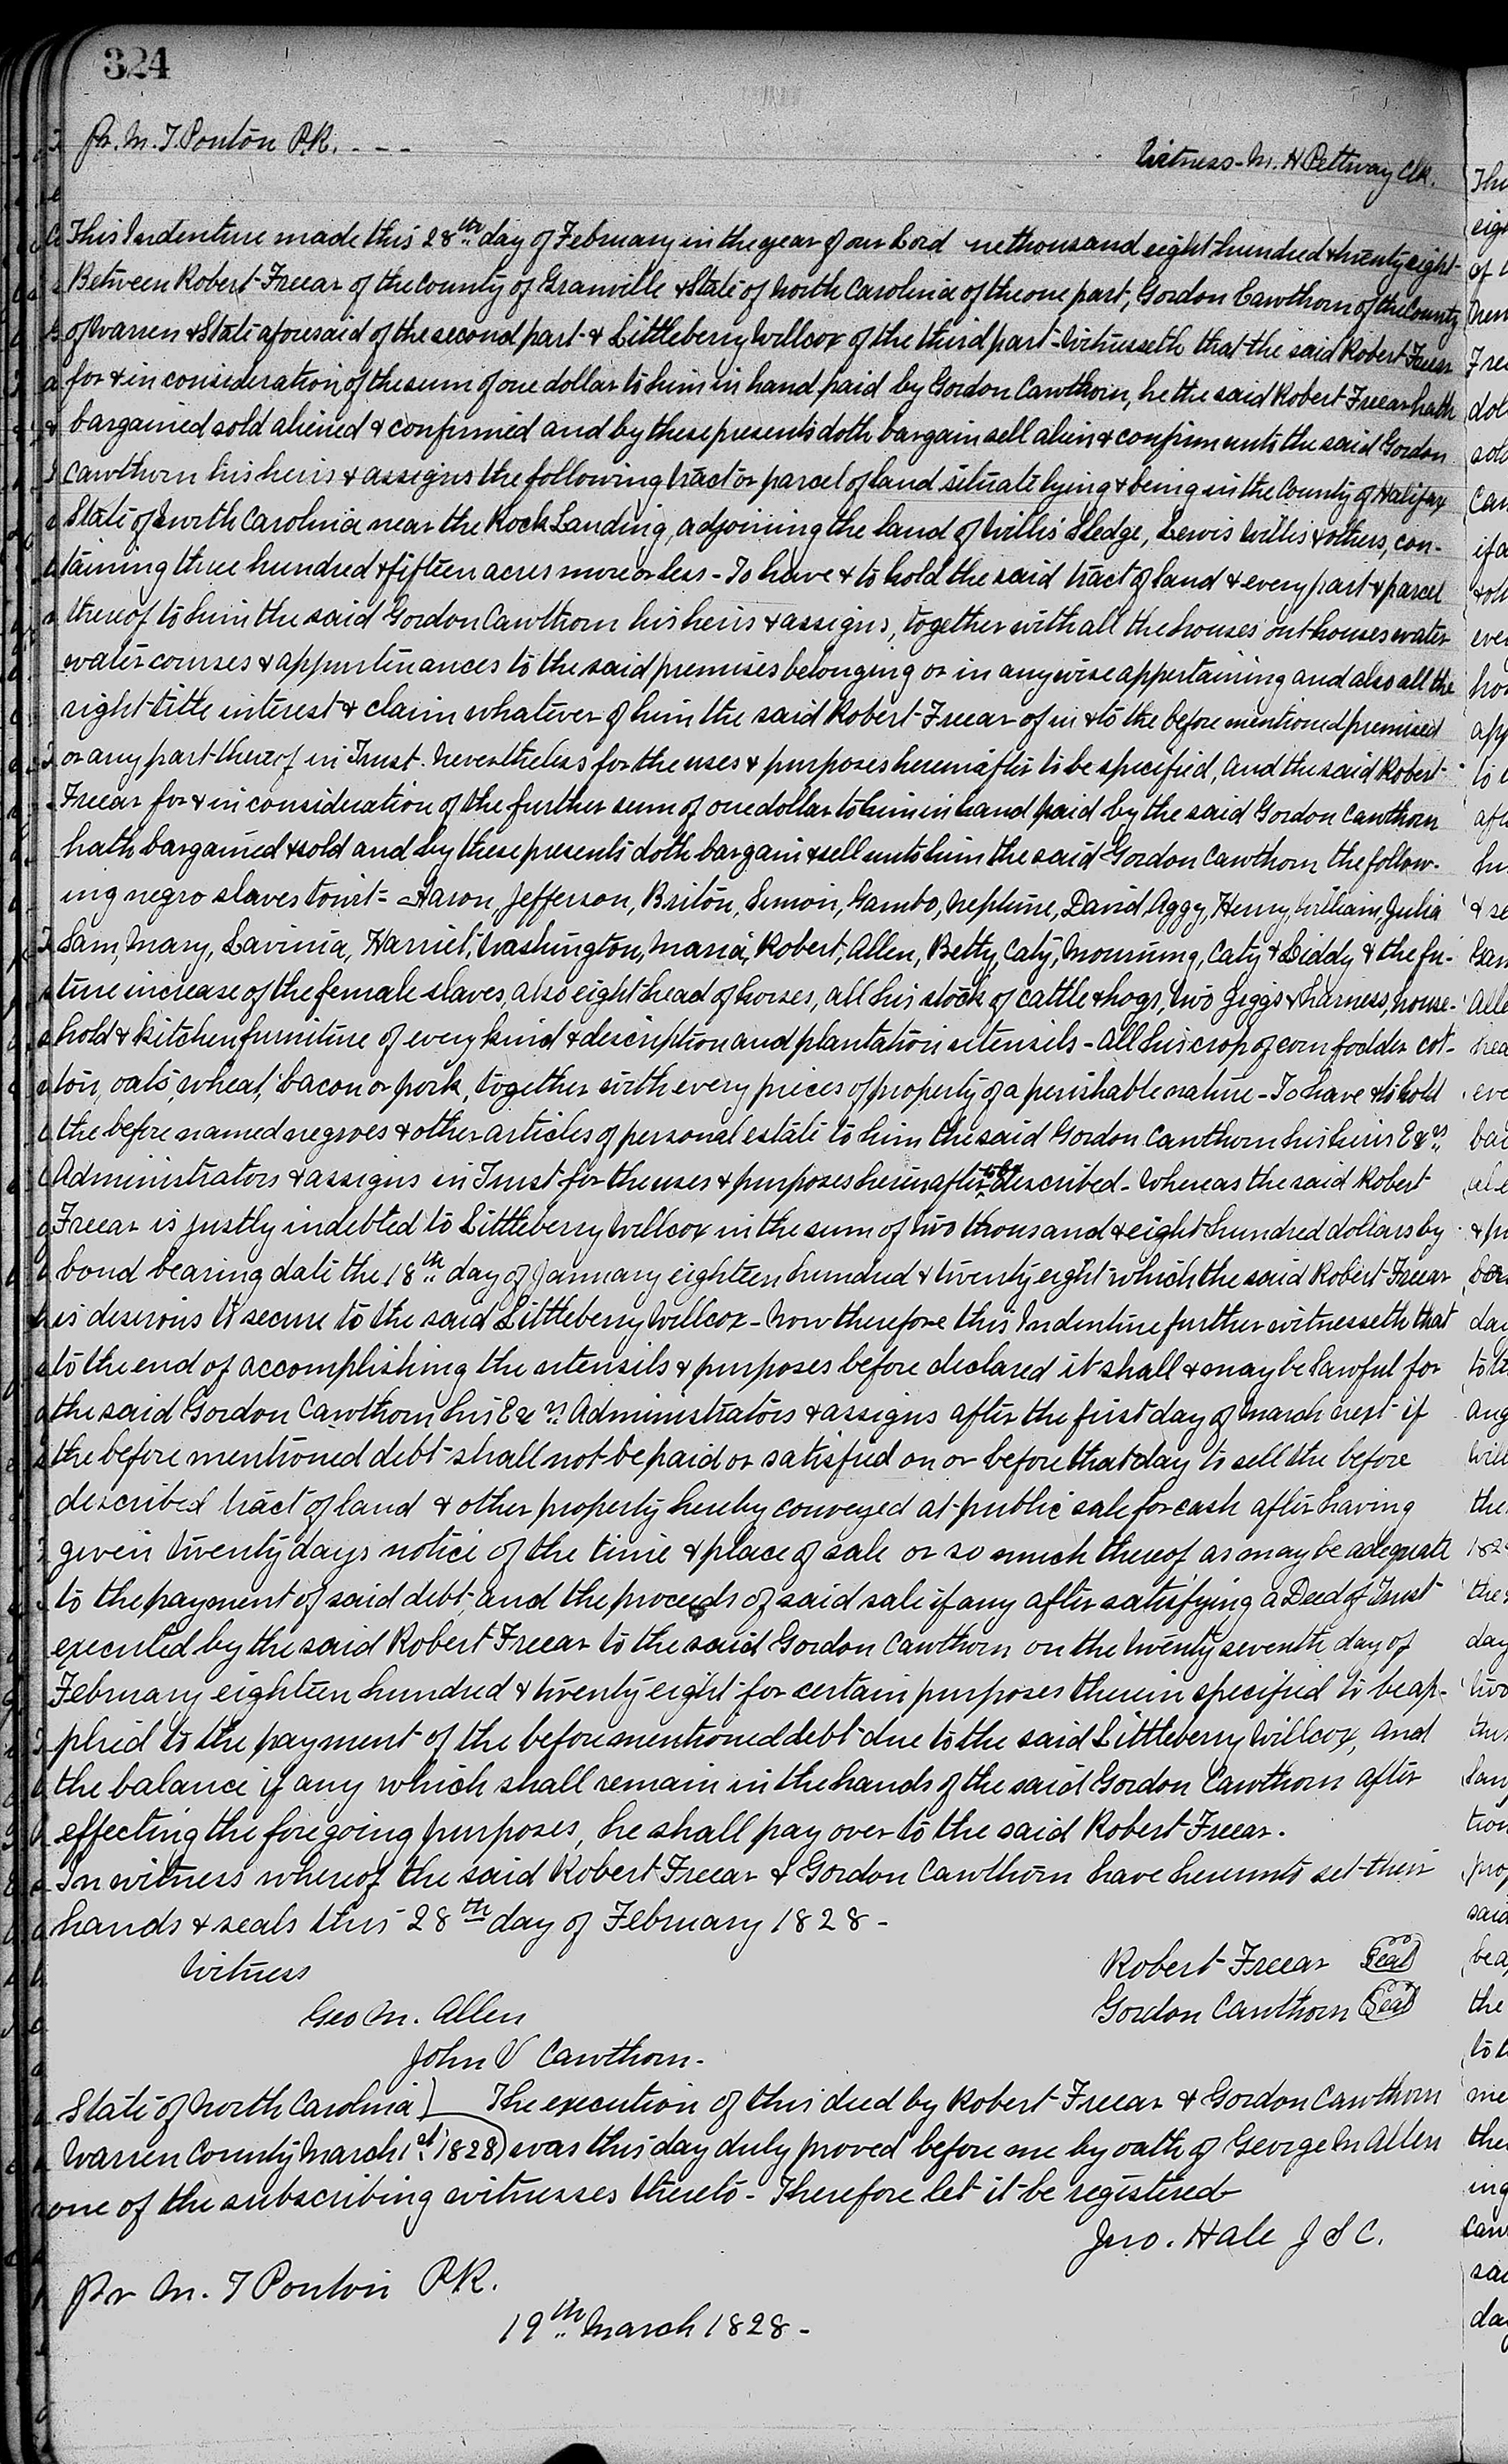 324
Pr. M. T. Ponton P.R. - - -
Witness - M. H Pettway Clk.
This Indenture made this 28th day of February in the year of our Lord ne thousand eight hundred & twenty eight -
Between Robert Freear of the County of Granville & State of North Carolina of the one part, Gordon Cawthorn of the County
of Warren & State aforesaid of the second part & Littleberry Willcox of the third part - Witnesseth that the said Robert Freear
for & in consideration of the sum of one dollar to him in hand paid by Gordon Cawthorn, he the said Robert Freear hath
bargained sold aliened & confirmed and by these presents doth bargain sell alien & confirm unto the said Gordon
Cawthorn his heirs & assigns the following tract or parcel of land situate lying & being in the County of Halifax
State of North Carolina near the Rock Landing, adjoining the land of Willis Sledge, Lewis Willis & others, con-
taining three hundred & fifteen acres more or less - To have & to hold the said tract of land & every part & parcel
thereof to him the said Gordon Cawthorn his heirs & assigns, together with all the houses out houses water
water courses & appurtinances to the said premises belonging or in any wise appertaining and also all the
right title interest & claim whatever of him the said Robert Freear of in & to the before mentioned premised
or any part thereof in Trust. Nevertheless for the uses & purposes hereinafter to be specified, And the said Robert
Freear for & in consideration of the further sum of one dollar to him in hand paid by the said Gordon Cawthorn
hath bargained & sold and by these presents doth bargain & sell unto him the said Gordon Cawthorn the follow-
ing negro slaves towit - Aaron, Jefferson, Briton, Simon, Gambo, Neptune, David, Aggy, Henry, William, Julia
Sam, Mary, Lavinia, Harriet, Washington, Maria, Robert, Allen, Betty, Caty, Mourning, Caty & Liddy & the fu-
ture increase of the female slaves, also eight head of horses, all his stock of cattle & hogs, two Giggs & harness, house-
hold & kitchen furniture of every kind & description and plantation utensils - All his crop of corn fodder cot-
ton, oats, wheat, bacon or pork, together with every pieces of property of a perishable nature - To have & to hold
the before named negroes & other articles of personal estate to him the said Gordon Cawthorn his heirs Exrs
Administrators & assigns in Trust for the uses & purposes hereinafter to be described - Whereas the said Robert
Freear is justly indebted to Littleberry Willcox in the sum of two thousand & eight hundred dollars by
bond bearing date the 18th day of January eighteen hundred & twenty eight which the said Robert Freear
is desirous to secure to the said Littleberry Willcox - Now therefore this Indenture further witnesseth that
to the end of accomplishing the utensils & purposes before declared it shall & may be lawful for
the said Gordon Cawthorn his Exrs Administrators & assigns after the first day of March next if
the before mentioned debt shall not be paid or satisfied on or before that day to sell the before
described tract of land & other property hereby conveyed at public sale for cash after having
given twenty days notice of the time & place of sale or so much thereof as may be adequate
to the payment of said debt and the proceeds of said sale if any after satisfying a Deed of Trust
executed by the said Robert Freear to the said Gordon Cawthorn on the twenty seventh day of
February eighteen hundred & twenty eight for certain purposes therein specified to be ap-
plied to the payment of the before mentioned debt due to the said Littleberry Willcox, And
the balance if any which shall remain in the hands of the said Gordon Cawthorn after
effecting the foregoing purposes, he shall pay over to the said Robert Freear.
In witness whereof the said Robert Freear & Gordon Cawthorn have hereunto set their
hands & seals this 28th day of February 1828 -
Witness
Robert Freear Seal
Geo M. Allen
Gordon Cawthorn Seal
John V Cawthorn.
State of North Carolina) The execution of this deed by Robert Freear & Gordon Cawthorn
Warren County March 1st 1828) was this day duly proved before me by oath of George M Allen
one of the subscribing witnesses thereto - Therefore let it be registered
Jno. Hale J S C.
Pr M. T Ponton P.R.
19th March 1828 -